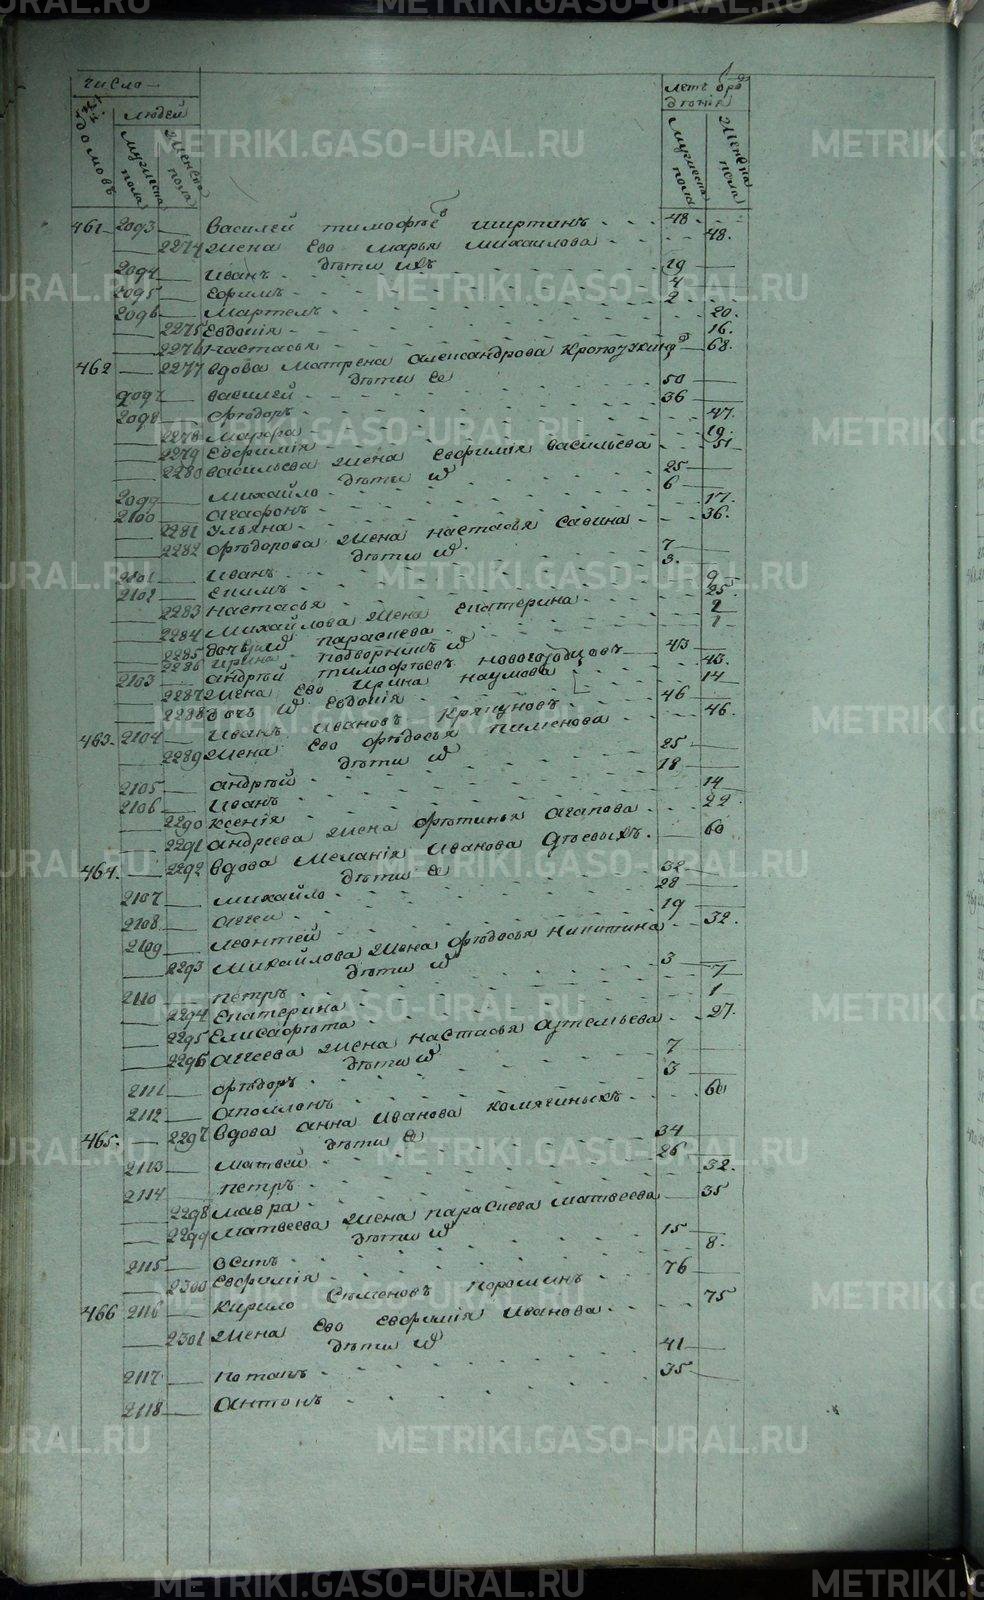 METRIKI.GASO-URAL.RU
числа
людей
домовъ
мужеска пола
женска пола
летъ от рождения
мужеска пола
женска пола
461 2093 Василей Тимофѣевъ 48
2274 жена Ево Марья Михаилова 48.
дѣти ихъ
2094 Иванъ 19
2095 Ефимъ 4
2096 2
2275 Евдокія 20.
2276 Настасья 16.
462 2277 вдова Матрена Александрова 68.
дѣти Ее
2097 Василей 50
2098 Ѳедоръ 36
2278 Марфа 47.
2279 Евфимія 19.
2280 Васильева жена Евфимія Васильева 51
дѣти
2099 Михайло 25
2100 Агафонъ 6
2281 Ульяна 17.
2282 Ѳедорова жена Настасья Савина 36.
дѣти
2101 Иванъ 7
2102 3.
2283 Настасья 9
2284 Михайлова жена Екатерина 25.
2285 дочь Параскева 2
2286 Ирина 1
2103 Андрѣй Тимофѣевъ Новогородцовъ 43
2287 жена Ево Ирина Наумова 43.
2288 дочь Евдокія 14
463. 2104 Иванъ Ивановъ 46
2289 жена Ево Ѳедосья Пименова 46.
дѣти
2105 Андрѣй 25
2106 Иванъ 18
2290 Ксенія 14
2291 Андреева жена Агапова 22
464. 2292 вдова Меланія Иванова 60
дѣти Ее
2107 Михайло 32
2108 Аггеи 28
2109 Леонтей 19
2293 Михайлова жена Ѳедосья Никитина 32.
дѣти
2110 Петръ 3
2294 Екатерина 7
2295 Елисафета 1
2296 Аггеева жена Настасья Артемьева 27.
дѣти
2111 Ѳедоръ 7
2112 Аполлонъ 3
465. 2297 вдова Анна Иванова Комягиныхъ 60
дѣти Ее
2113 Матвей 34
2114 Петръ 26
2298 Мавра 32.
2299 Матвеева жена Параскева Матвеева 35
дѣти
2115 Осипъ 15
2300 Евфимія 8.
466 2116 Кирило Семеновъ 76
2301 жена Ево Евфимія Иванова 75
дѣти
2117 Потапъ 41
2118 Антонъ 35